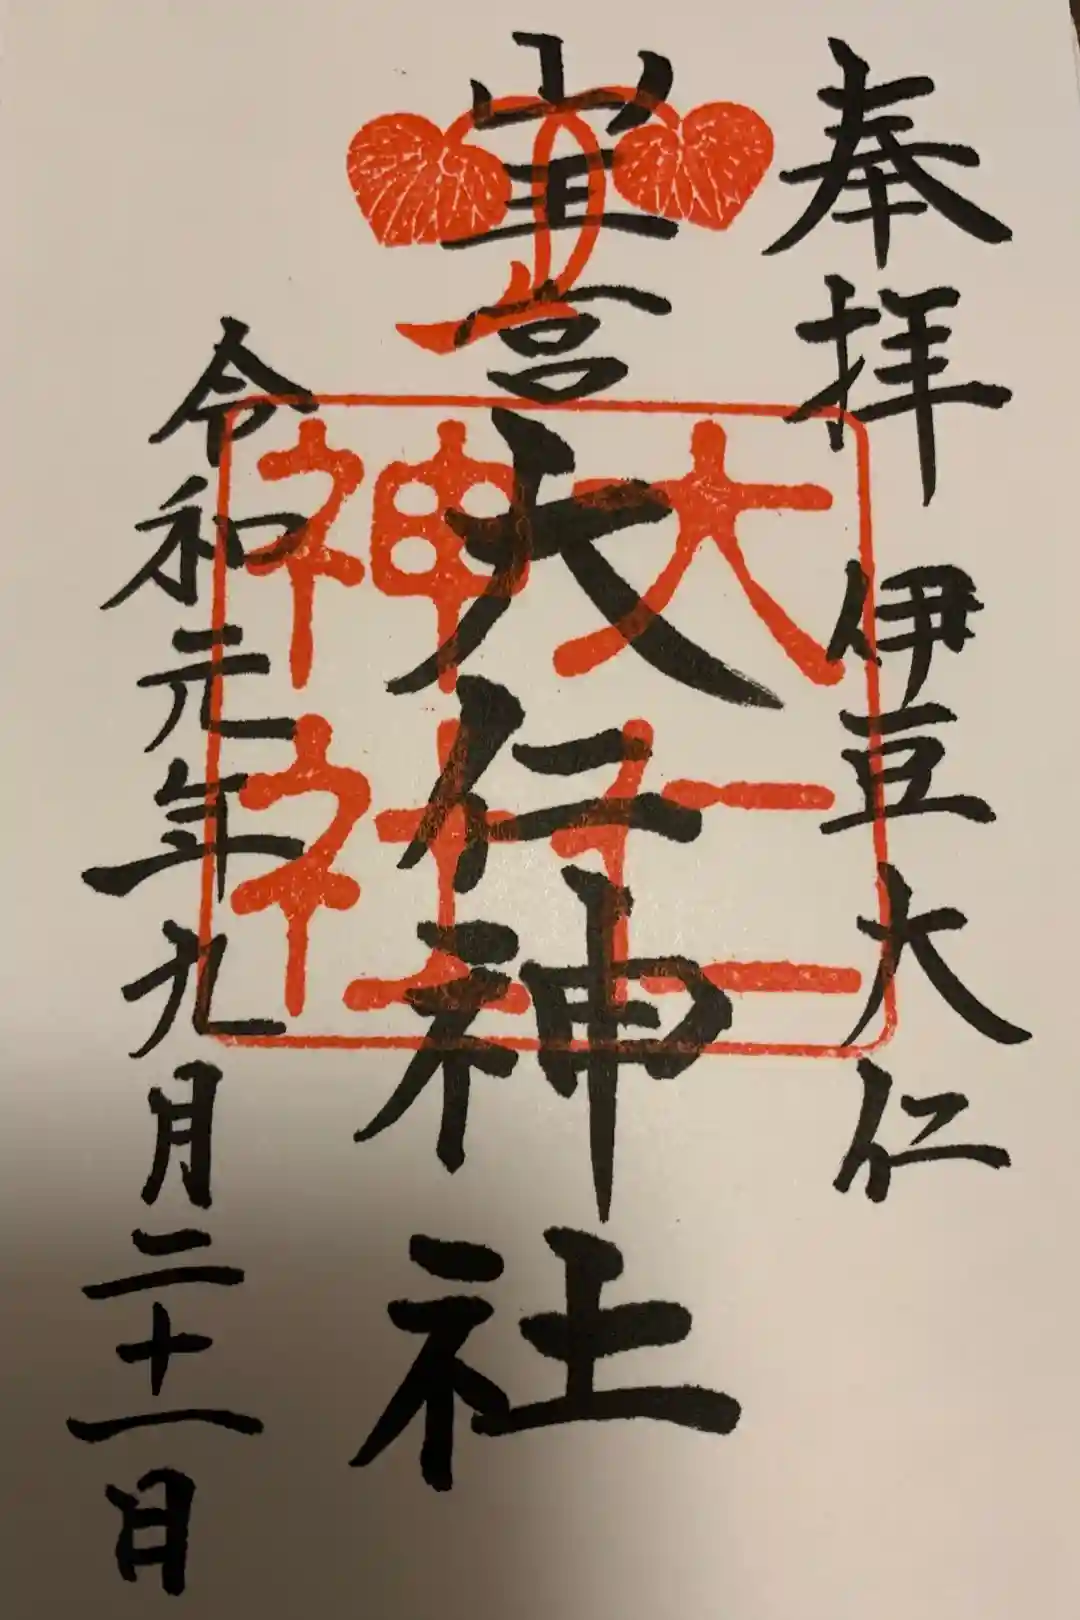 奉拝　伊豆大仁
山王宮大仁神社
大仁
神社
令和元年九月二十一日